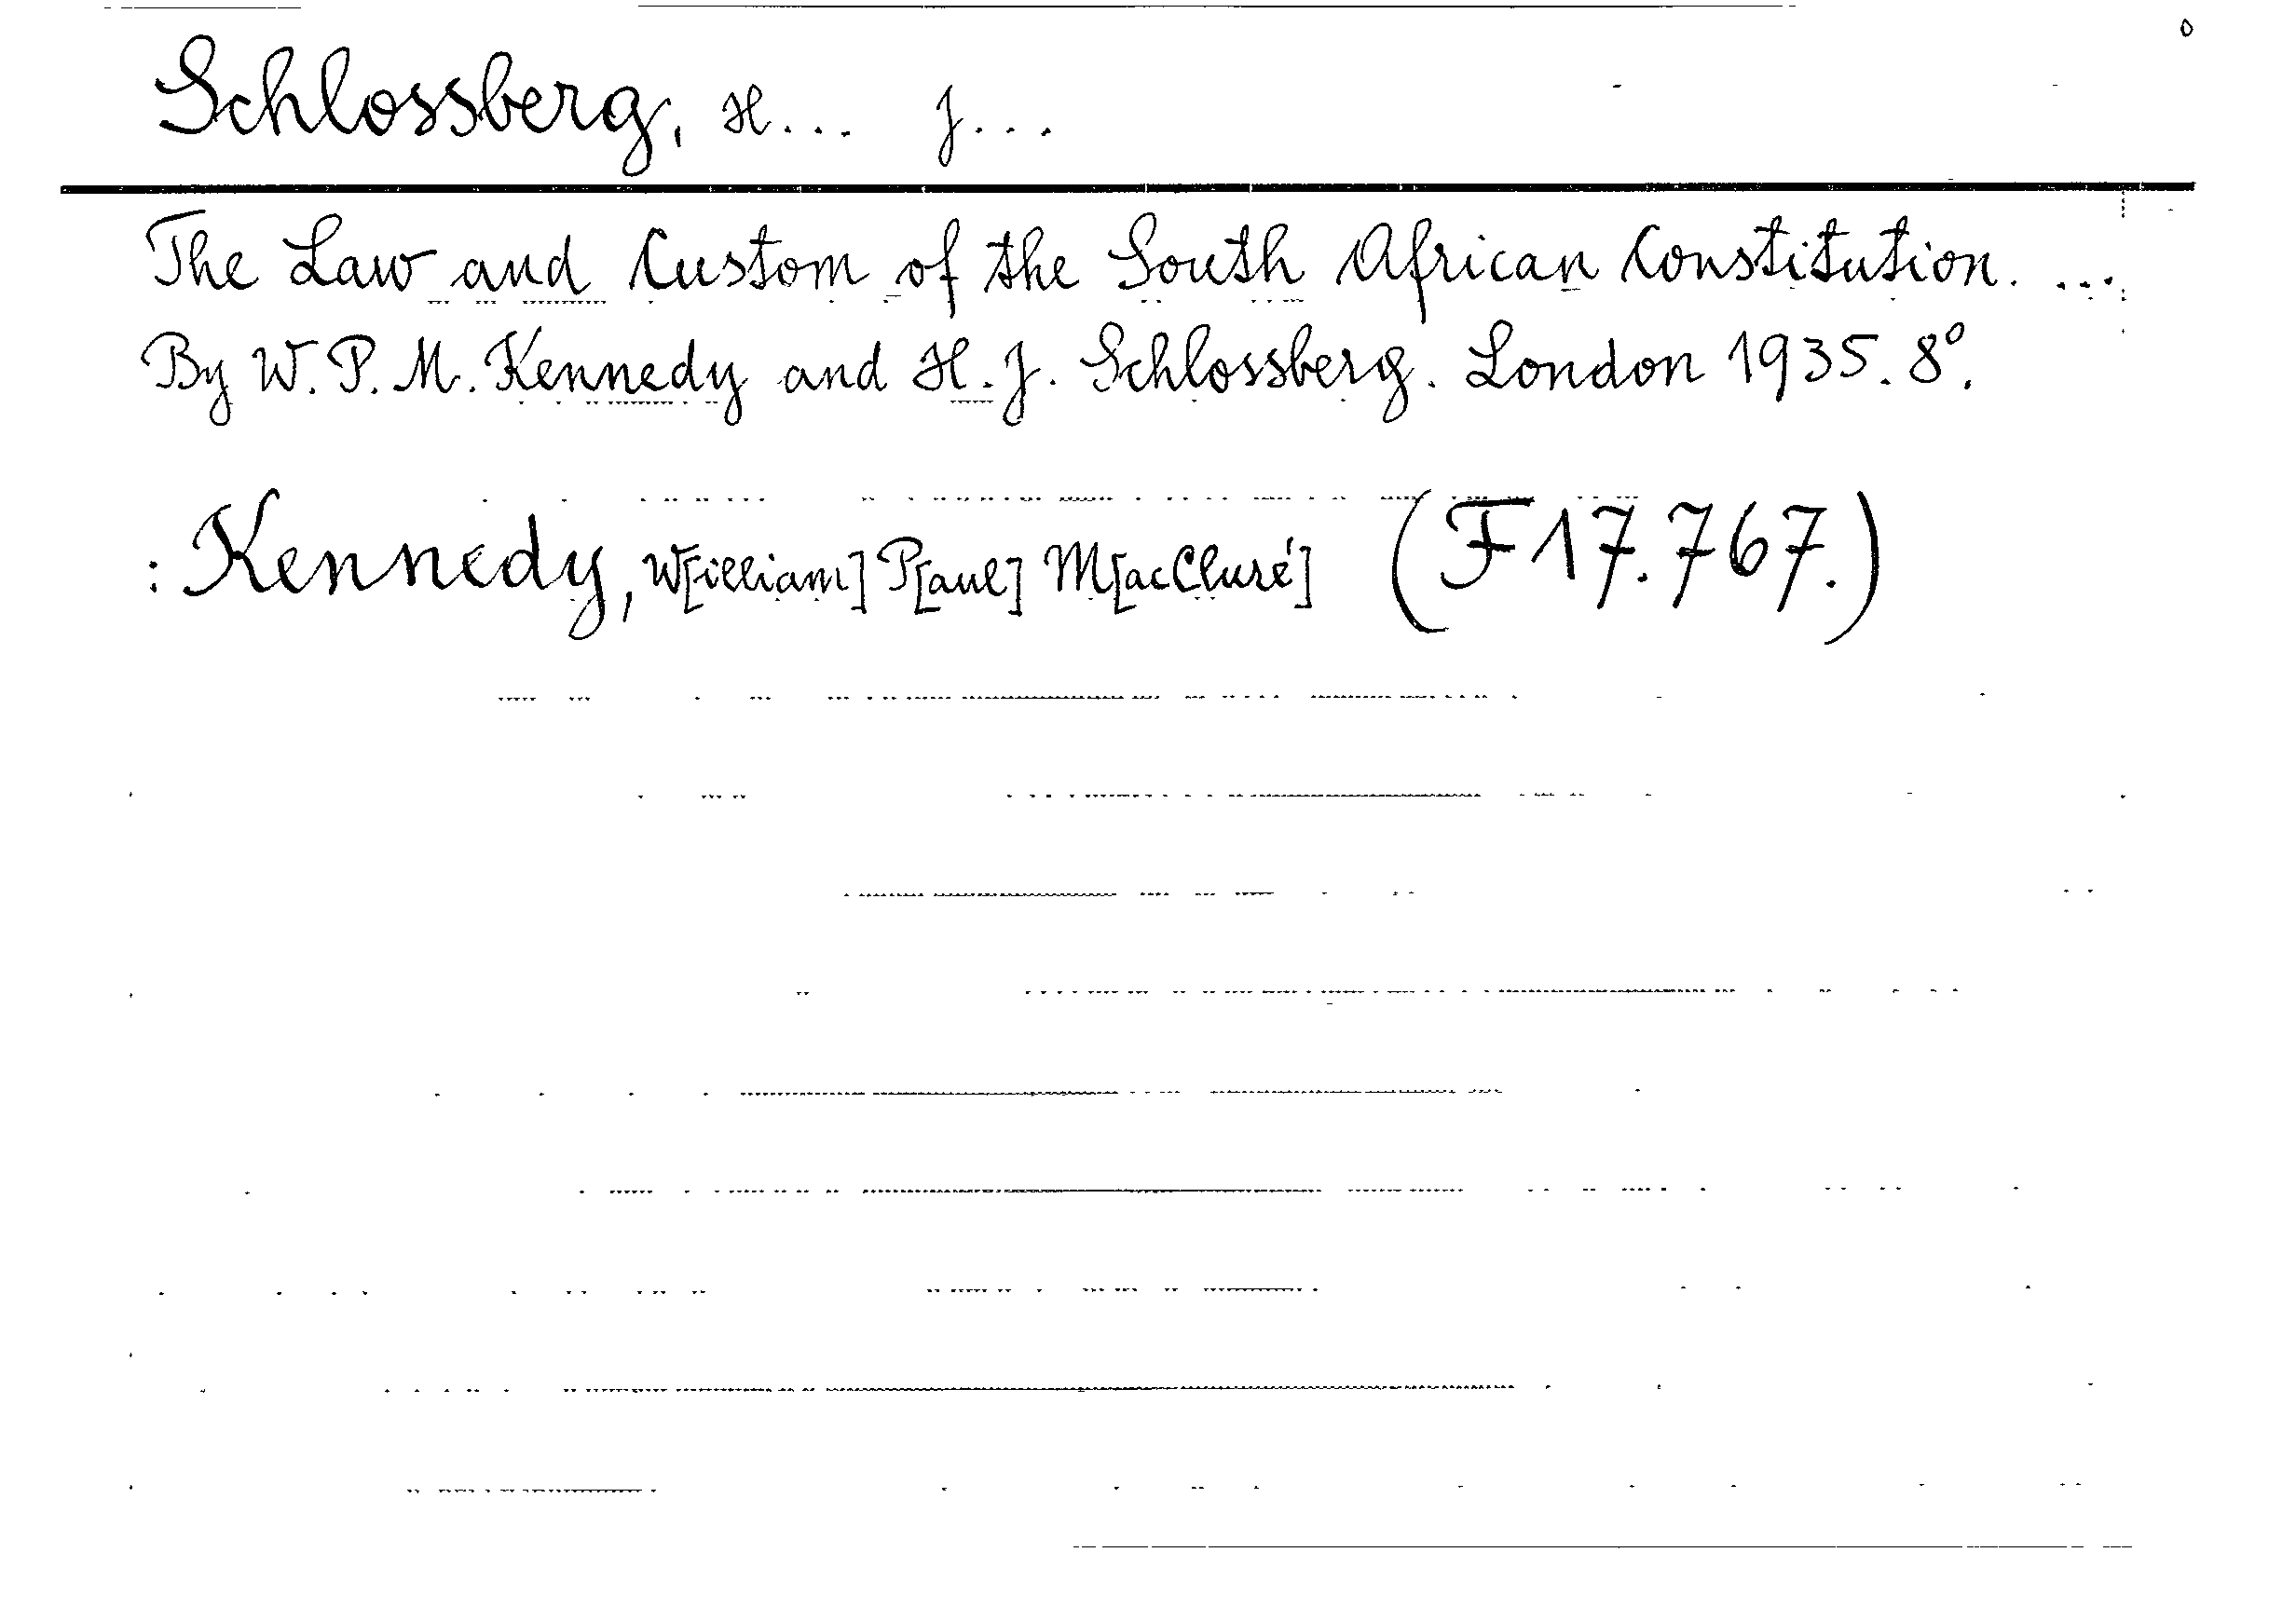 Schlossberg, H... J...
The Law and Custom of the South African Constitution. ...
By W. P. M. Kennedy and H. J. Schlossberg. London 1935. 8°.
: Kennedy, W[illiam] P[aul] M[acCluré] (F 17.767.)